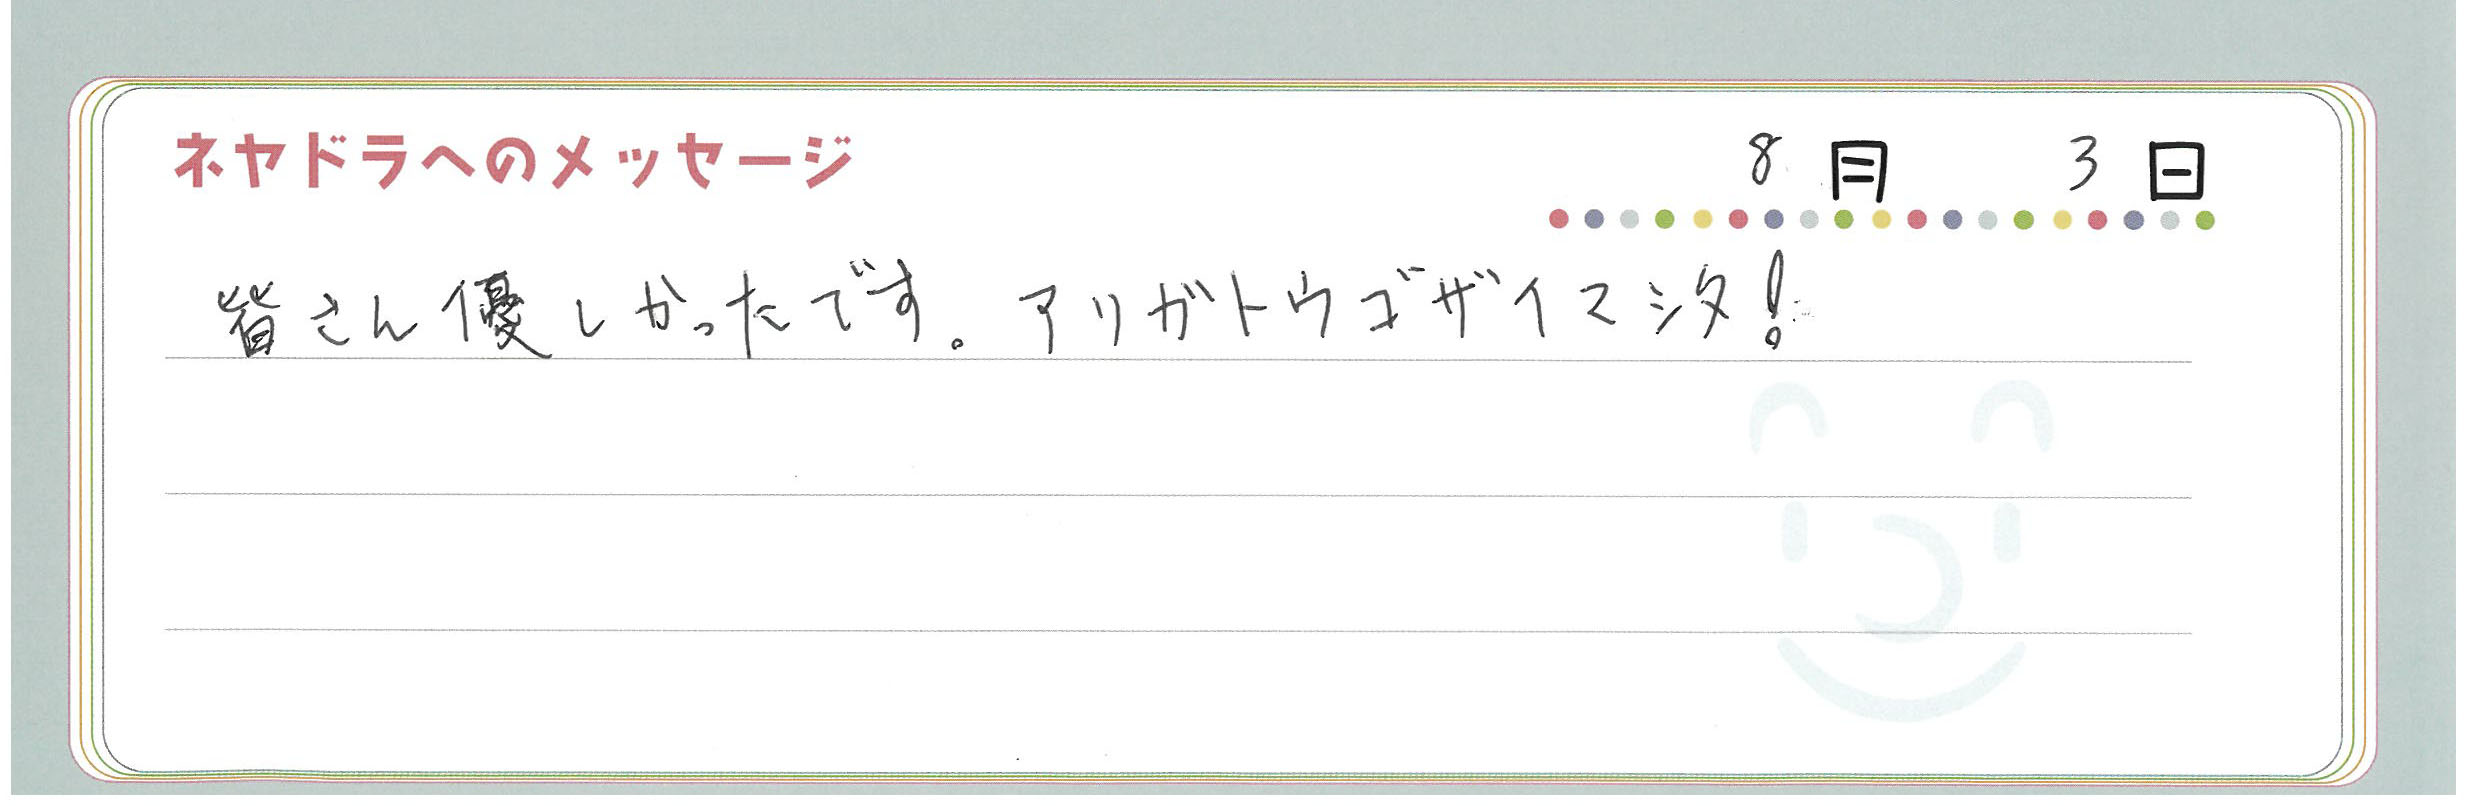 ネヤドラへのメッセージ
8月 3日
皆さん優しかったです。アリガトウゴザイマシタ!